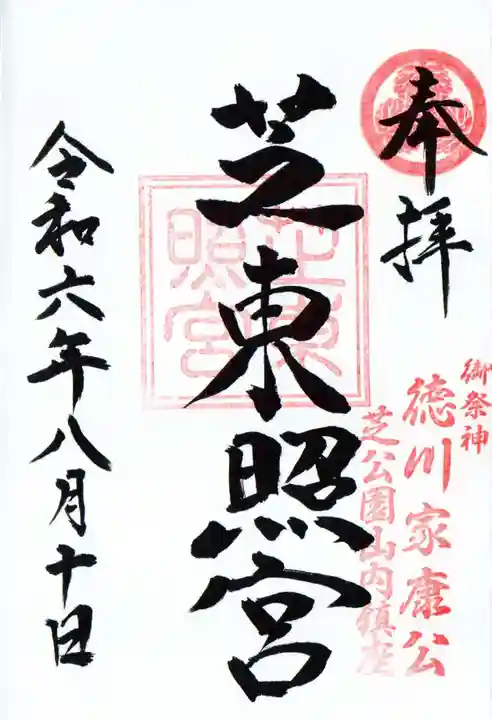 奉拝
御祭神
徳川家康公
芝公園山内鎮座
芝東照宮
芝東照宮
令和六年八月十日